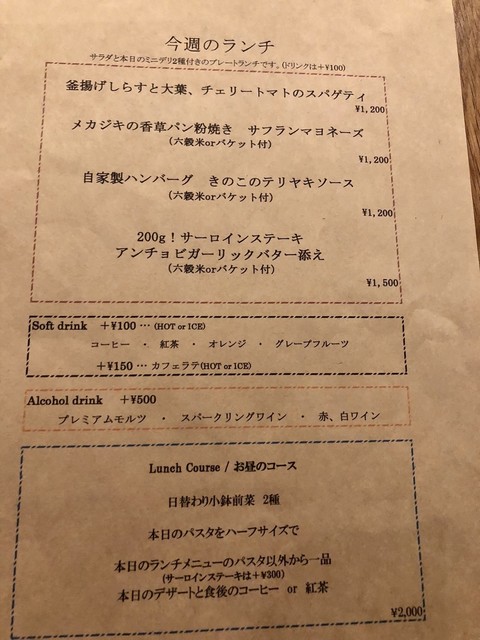 今週のランチ
サラダと本日のミニデリ2種付きのプレートランチです。(ドリンクは+¥100)
釜揚げしらすと大葉、チェリートマトのスパゲティ
¥1,200
メカジキの香草パン粉焼き サフランマヨネーズ
(六穀米orバケット付)
¥1,200
自家製ハンバーグ きのこのテリヤキソース
(六穀米orバケット付)
¥1,200
200g！サーロインステーキ
アンチョビガーリックバター添え
(六穀米orバケット付)
¥1,500
Soft drink +¥100 … (HOT or ICE)
コーヒー ・ 紅茶 ・ オレンジ ・ グレープフルーツ
+¥150 … カフェラテ(HOT or ICE)
Alcohol drink +¥500
プレミアムモルツ ・ スパークリングワイン ・ 赤、白ワイン
Lunch Course / お昼のコース
日替わり小鉢前菜 2種
本日のパスタをハーフサイズで
本日のランチメニューのパスタ以外から一品
(サーロインステーキは+¥300)
本日のデザートと食後のコーヒー or 紅茶
¥2,000